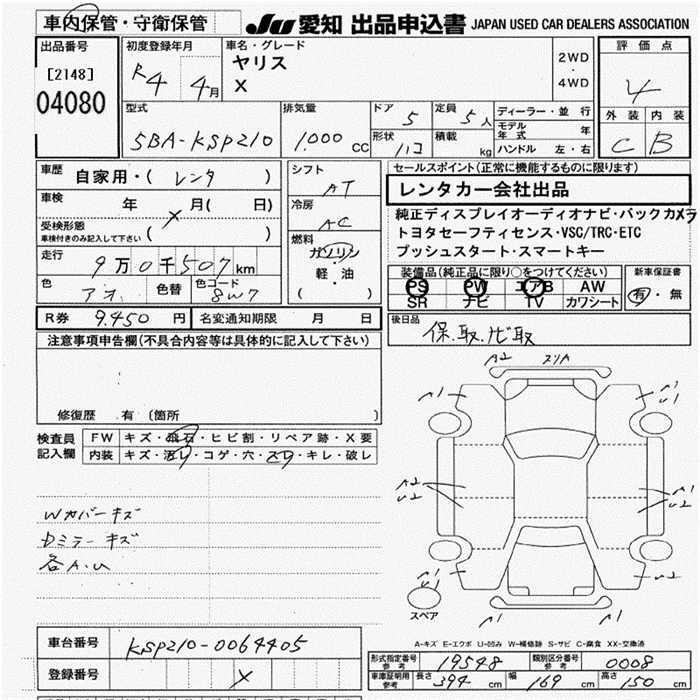 車内保管・守衛保管
JU 愛知 出品申込書 JAPAN USED CAR DEALERS ASSOCIATION
出品番号
[2148]
04080
初度登録年月
R4 4月
車名・グレード
ヤリス
X
2WD
4WD
評価点
4
外装 内装
C B
型式
5BA-KSP210
排気量
1,000 CC
ドア 5
形状 ハコ
定員 5人
積載 kg
ディーラー・並行
モデル年式 年
ハンドル 左・右
車歴
自家用・( レンタ )
車検 年 X 月( 日)
受検形態
車検付きのみ記入して下さい ( )
走行
9万0千507km
色 アオ 色替 色コード 8W7
シフト
AT
冷房
AC
燃料
ガソリン
軽・油
( )
セールスポイント(正常に機能するものに限ります)
レンタカー会社出品
純正ディスプレイオーディオナビ・バックカメラ
トヨタセーフティセンス・VSC/TRC・ETC
プッシュスタート・スマートキー
装備品(純正品に限り○をつけてください)
PS PW エアB AW
SR ナビ TV カワシート
新車保証書
有・無
R券 9.450 円 名変通知期限 月 日
後日品
保.取.ナビ取
注意事項申告欄(不具合内容等は具体的に記入して下さい)
修復歴 有 〔箇所 〕
検査員記入欄
FW キズ・飛石・ヒビ割・リペア跡・X要
内装 キズ・汚レ・コゲ・穴・スレ・キレ・破レ
Wカバーキズ
Dミラーキズ
各A.U
A2 スリA
A1
A1
U1
A2
U2
A1
U1
A1
U1
U2
A1
A1
スペア
A-キズ E-エクボ U-凹み W-補修跡 S-サビ C-腐食 XX-交換済
車台番号 KSP210-0064405
登録番号 X
形式指定番号 参考 19548 類別区分番号 参考 0008
車庫証明用 参考 長さ 394 cm 幅 169 cm 高さ 150 cm